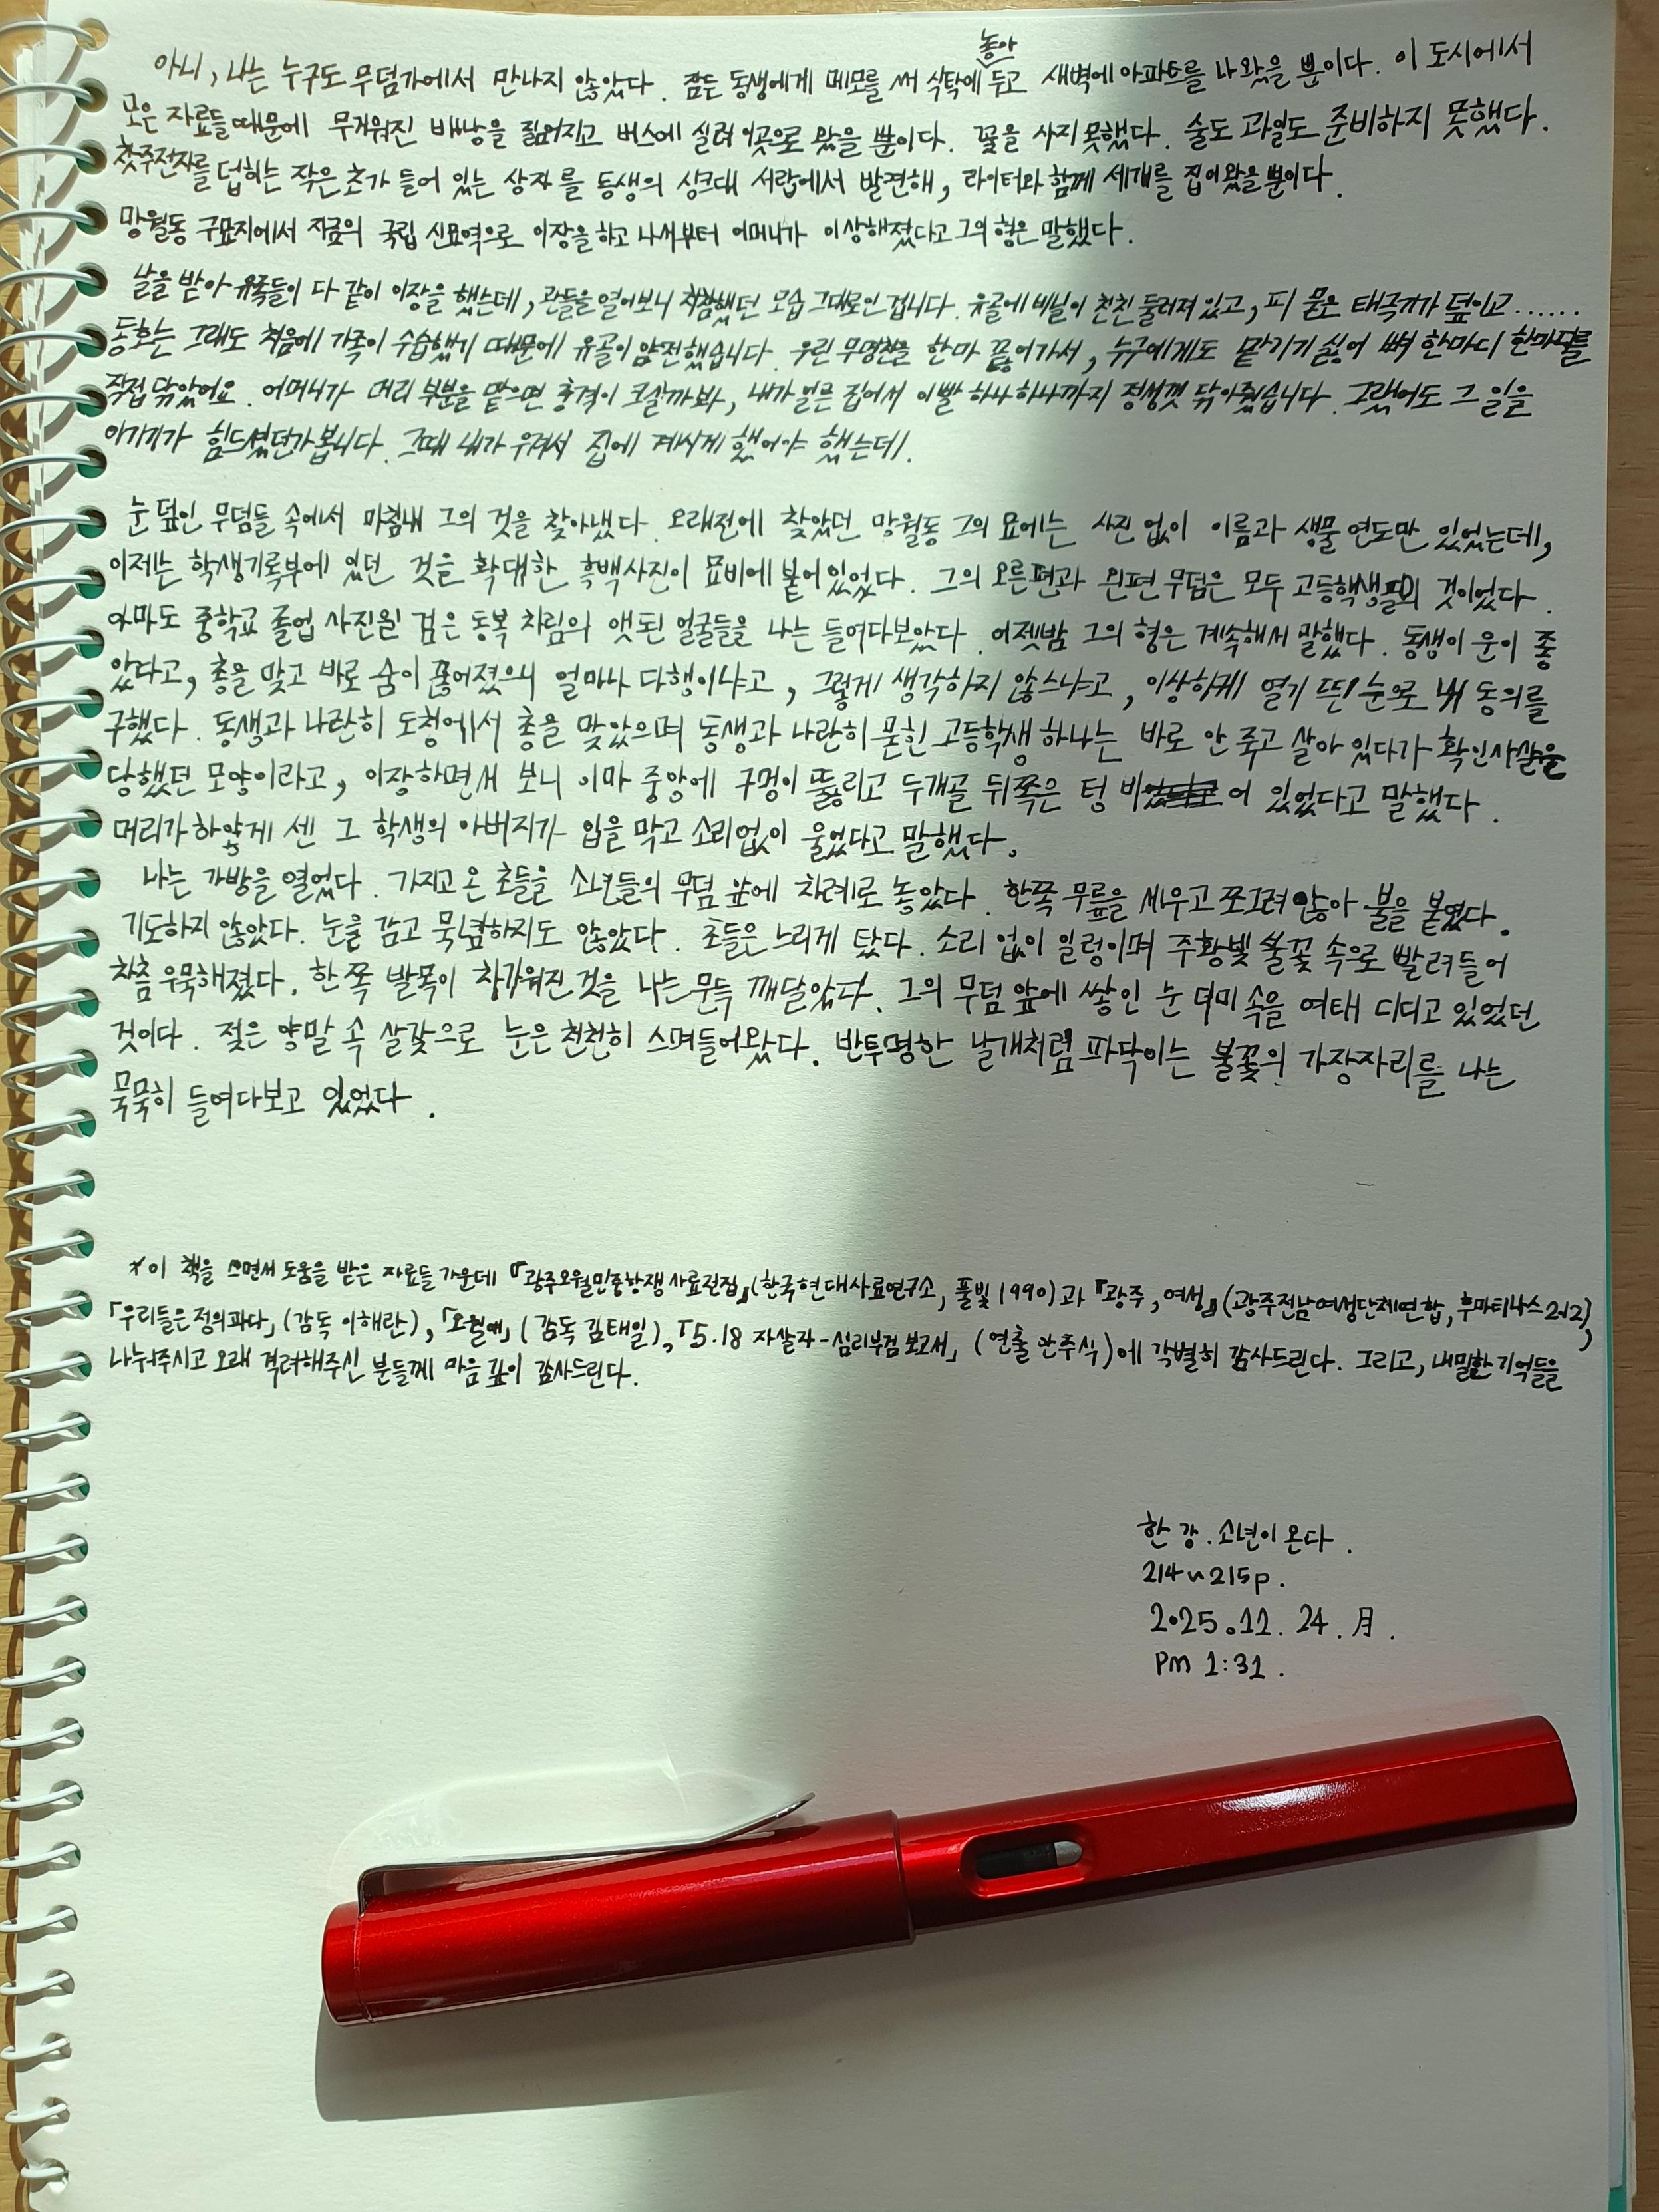 아니, 나는 누구도 무덤가에서 만나지 않았다. 잠든 동생에게 메모를 써 식탁에 놓아 두고 새벽에 아파트를 나왔을 뿐이다. 이 도시에서
모은 자료들 때문에 무거워진 배낭을 짊어지고 버스에 실려 이곳으로 왔을 뿐이다. 꽃을 사지 못했다. 술도 과일도 준비하지 못했다.
찻주전자를 덥히는 작은 초가 들어 있는 상자를 동생의 싱크대 서랍에서 발견해, 라이터와 함께 세개를 집어왔을 뿐이다.
망월동 구묘지에서 지금의 국립 신묘역으로 이장을 하고 나서부터 어머니가 이상해졌다고 그의 형은 말했다.
날을 받아 유족들이 다 같이 이장을 했는데, 관들을 열어보니 처참했던 모습 그대로인 겁니다. 유골에 비닐이 친친 둘러져 있고, 피 묻은 태극기가 덮이고......
동호는 그래도 처음에 가족이 수습했기 때문에 유골이 얌전했습니다. 우린 무명천을 한마 끊어가서, 누구에게도 맡기기 싫어 뼈 한마디 한마디를
직접 닦았어요. 어머니가 머리 부분을 맡으면 충격이 크실까봐, 내가 얼른 집어서 이빨 하나 하나까지 정성껏 닦아줬습니다. 그랬어도 그 일을
이기기가 힘드셨던가 봅니다. 그때 내가 우겨서 집에 계시게 했어야 했는데.
눈 덮인 무덤들 속에서 마침내 그의 것을 찾아냈다. 오래전에 찾았던 망월동 그의 묘에는 사진 없이 이름과 생몰 연도만 있었는데,
이제는 학생기록부에 있던 것을 확대한 흑백사진이 묘비에 붙어 있었다. 그의 오른편과 왼편 무덤은 모두 고등학생들의 것이었다.
아마도 중학교 졸업 사진일 검은 동복 차림의 앳된 얼굴들을 나는 들여다보았다. 어젯밤 그의 형은 계속해서 말했다. 동생이 운이 좋
았다고, 총을 맞고 바로 숨이 끊어졌으니 얼마나 다행이냐고, 그렇게 생각하지 않느냐고, 이상하게 열기 띤 눈으로 내 동의를
구했다. 동생과 나란히 도청에서 총을 맞았으며 동생과 나란히 묻힌 고등학생 하나는 바로 안 죽고 살아 있다가 확인사살을
당했던 모양이라고, 이장하면서 보니 이마 중앙에 구멍이 뚫리고 두개골 뒤쪽은 텅 비어 있었다고 말했다.
머리가 하얗게 센 그 학생의 아버지가 입을 막고 소리없이 울었다고 말했다.
나는 가방을 열었다. 가지고 온 초들을 소년들의 무덤 앞에 차례로 놓았다. 한쪽 무릎을 세우고 쪼그려 앉아 불을 붙였다.
기도하지 않았다. 눈을 감고 묵념하지도 않았다. 초들은 느리게 탔다. 소리 없이 일렁이며 주황빛 불꽃 속으로 빨려들어
차츰 우묵해졌다. 한 쪽 발목이 차가워진 것을 나는 문득 깨달았다. 그의 무덤 앞에 쌓인 눈 더미 속을 여태 디디고 있었던
것이다. 젖은 양말 속 살갗으로 눈은 천천히 스며들어왔다. 반투명한 날개처럼 파닥이는 불꽃의 가장자리를 나는
묵묵히 들여다보고 있었다.
*이 책을 쓰면서 도움을 받은 자료들 가운데 『광주오월민중항쟁사료전집』(한국현대사료연구소, 풀빛 1990)과 『광주, 여성』(광주전남여성단체연합, 후마니타스 2012),
「우리들은 정의파다」(감독 이혜란), 「오월애」(감독 김태일), 「5.18 자살자-심리부검 보고서」 (연출 안주식)에 각별히 감사드린다. 그리고, 내밀한 기억들을
나눠주시고 오래 격려해주신 분들께 마음 깊이 감사드린다.
한 강. 소년이 온다.
214~215p.
2025.11. 24. 月.
PM 1:31.